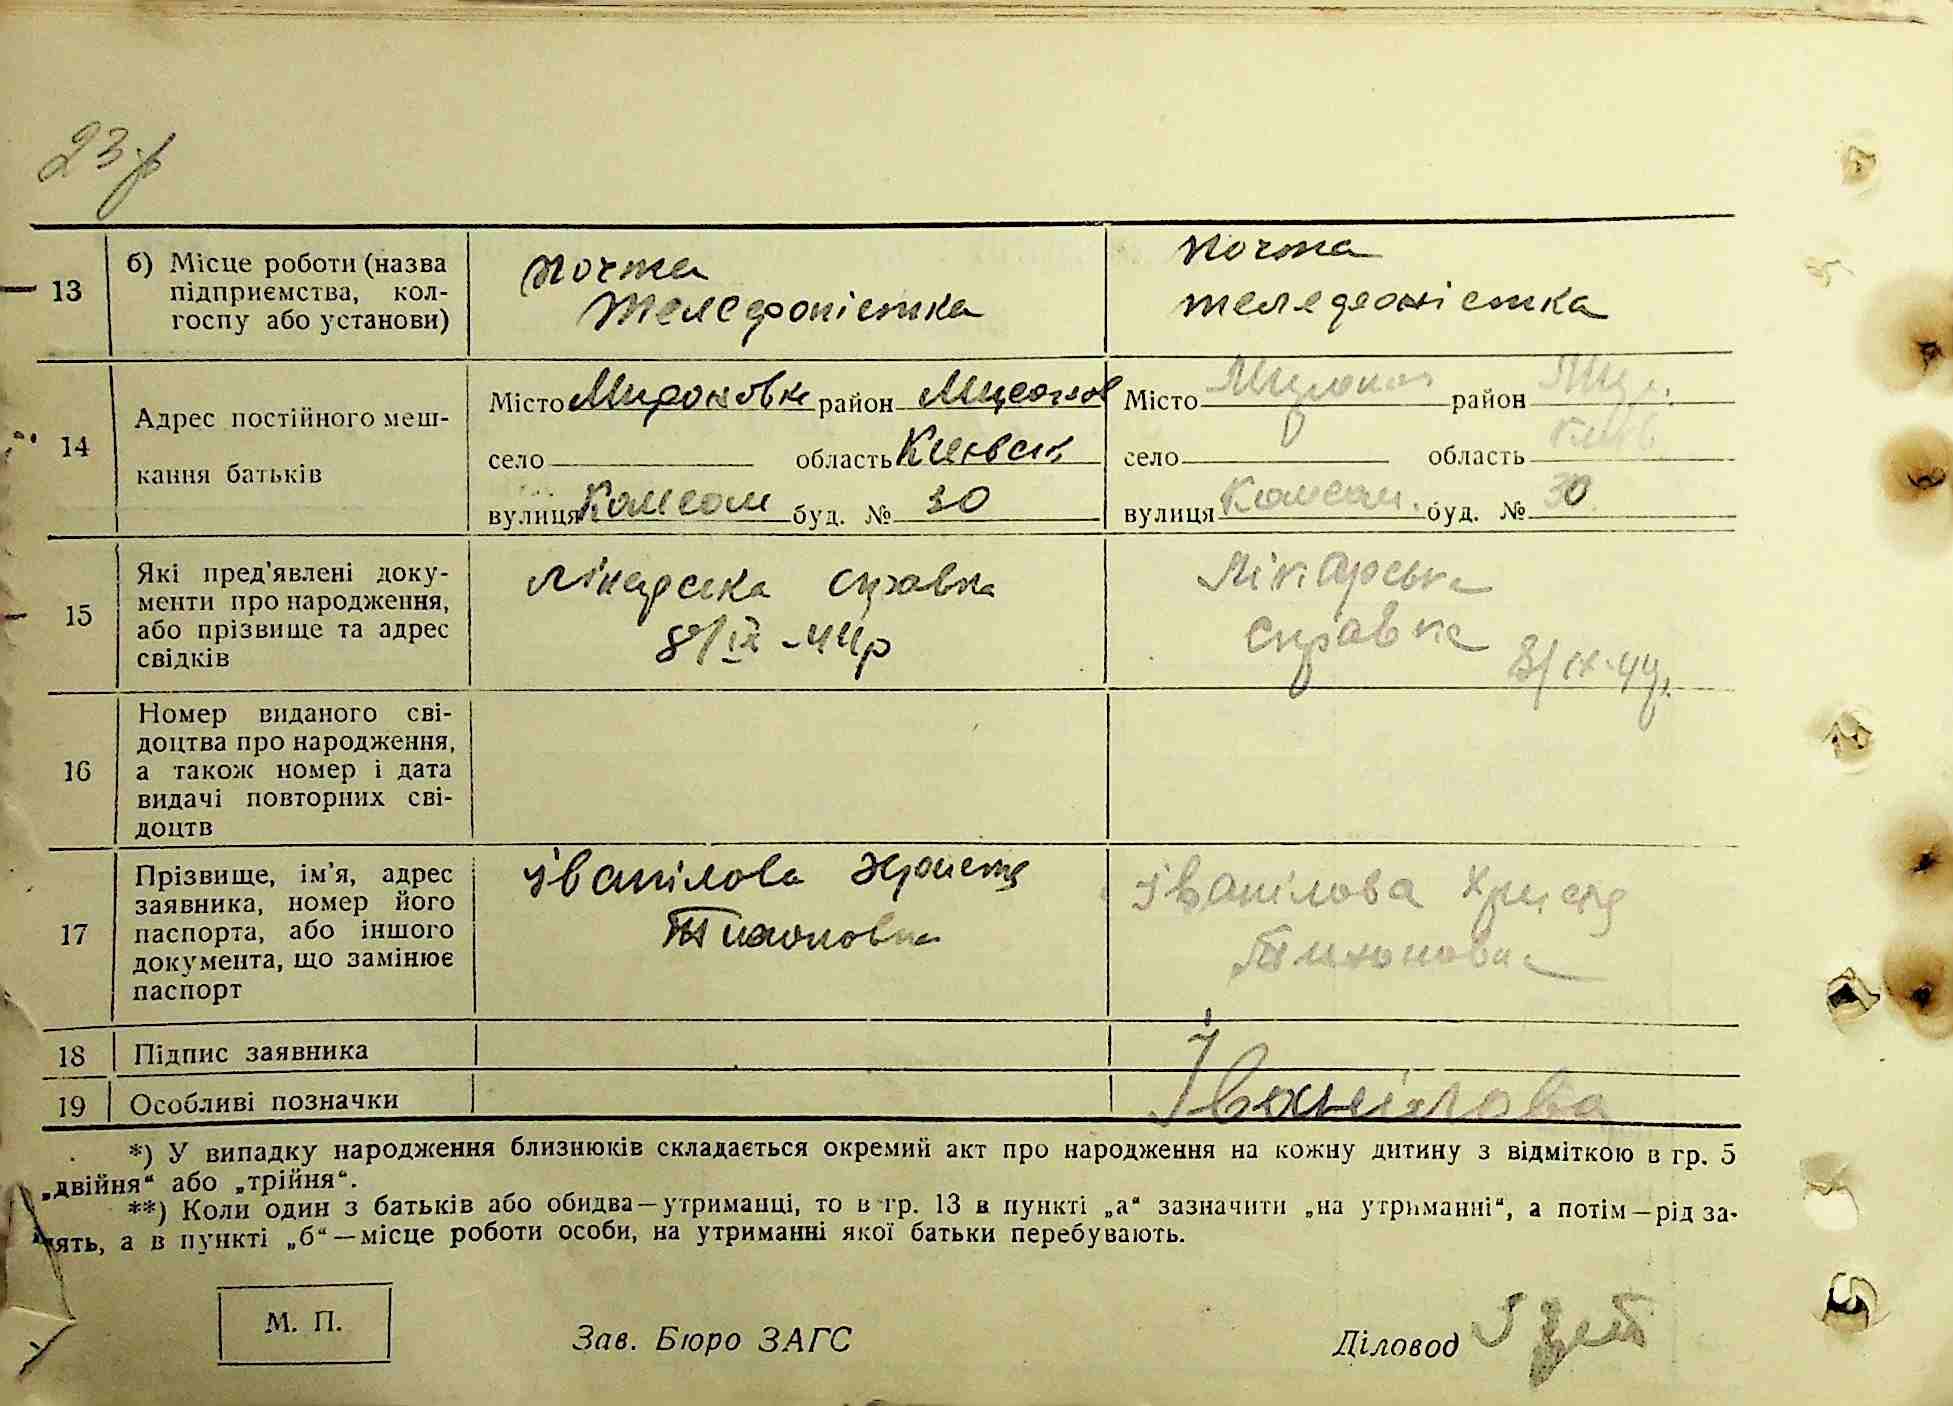 23
13
б) Місце роботи (назва
підприємства, кол-
госпу або установи)
почта
телефоністка
почта
телефоністка
14
Адрес постійного меш-
кання батьків
Місто Мироновка район Мирон
село область Київськ
вулиця Комсом буд. № 30
Місто Миронов район Мир.
село область Київ.
вулиця Комсом. буд. № 30
15
Які пред'явлені доку-
менти про народження,
або прізвище та адрес
свідків
лікарска справка
8/IX-44р
Лікарська
справка
8/IX-44р.
16
Номер виданого сві-
доцтва про народження,
а також номер і дата
видачі повторних сві-
доцтв
17
Прізвище, ім'я, адрес
заявника, номер його
паспорта, або іншого
документа, що замінює
паспорт
Іванілова Христя
Тихоновна
Іванілова Христя
Тихоновна
18
Підпис заявника
19
Особливі позначки
Іванілова
*) У випадку народження близнюків складається окремий акт про народження на кожну дитину з відміткою в гр. 5
„двійня“ або „трійня“.
**) Коли один з батьків або обидва—утриманці, то в гр. 13 в пункті „а“ зазначити „на утриманні“, а потім—рід за-
нять, а в пункті „б“—місце роботи особи, на утриманні якої батьки перебувають.
М. П.
Зав. Бюро ЗАГС
Діловод